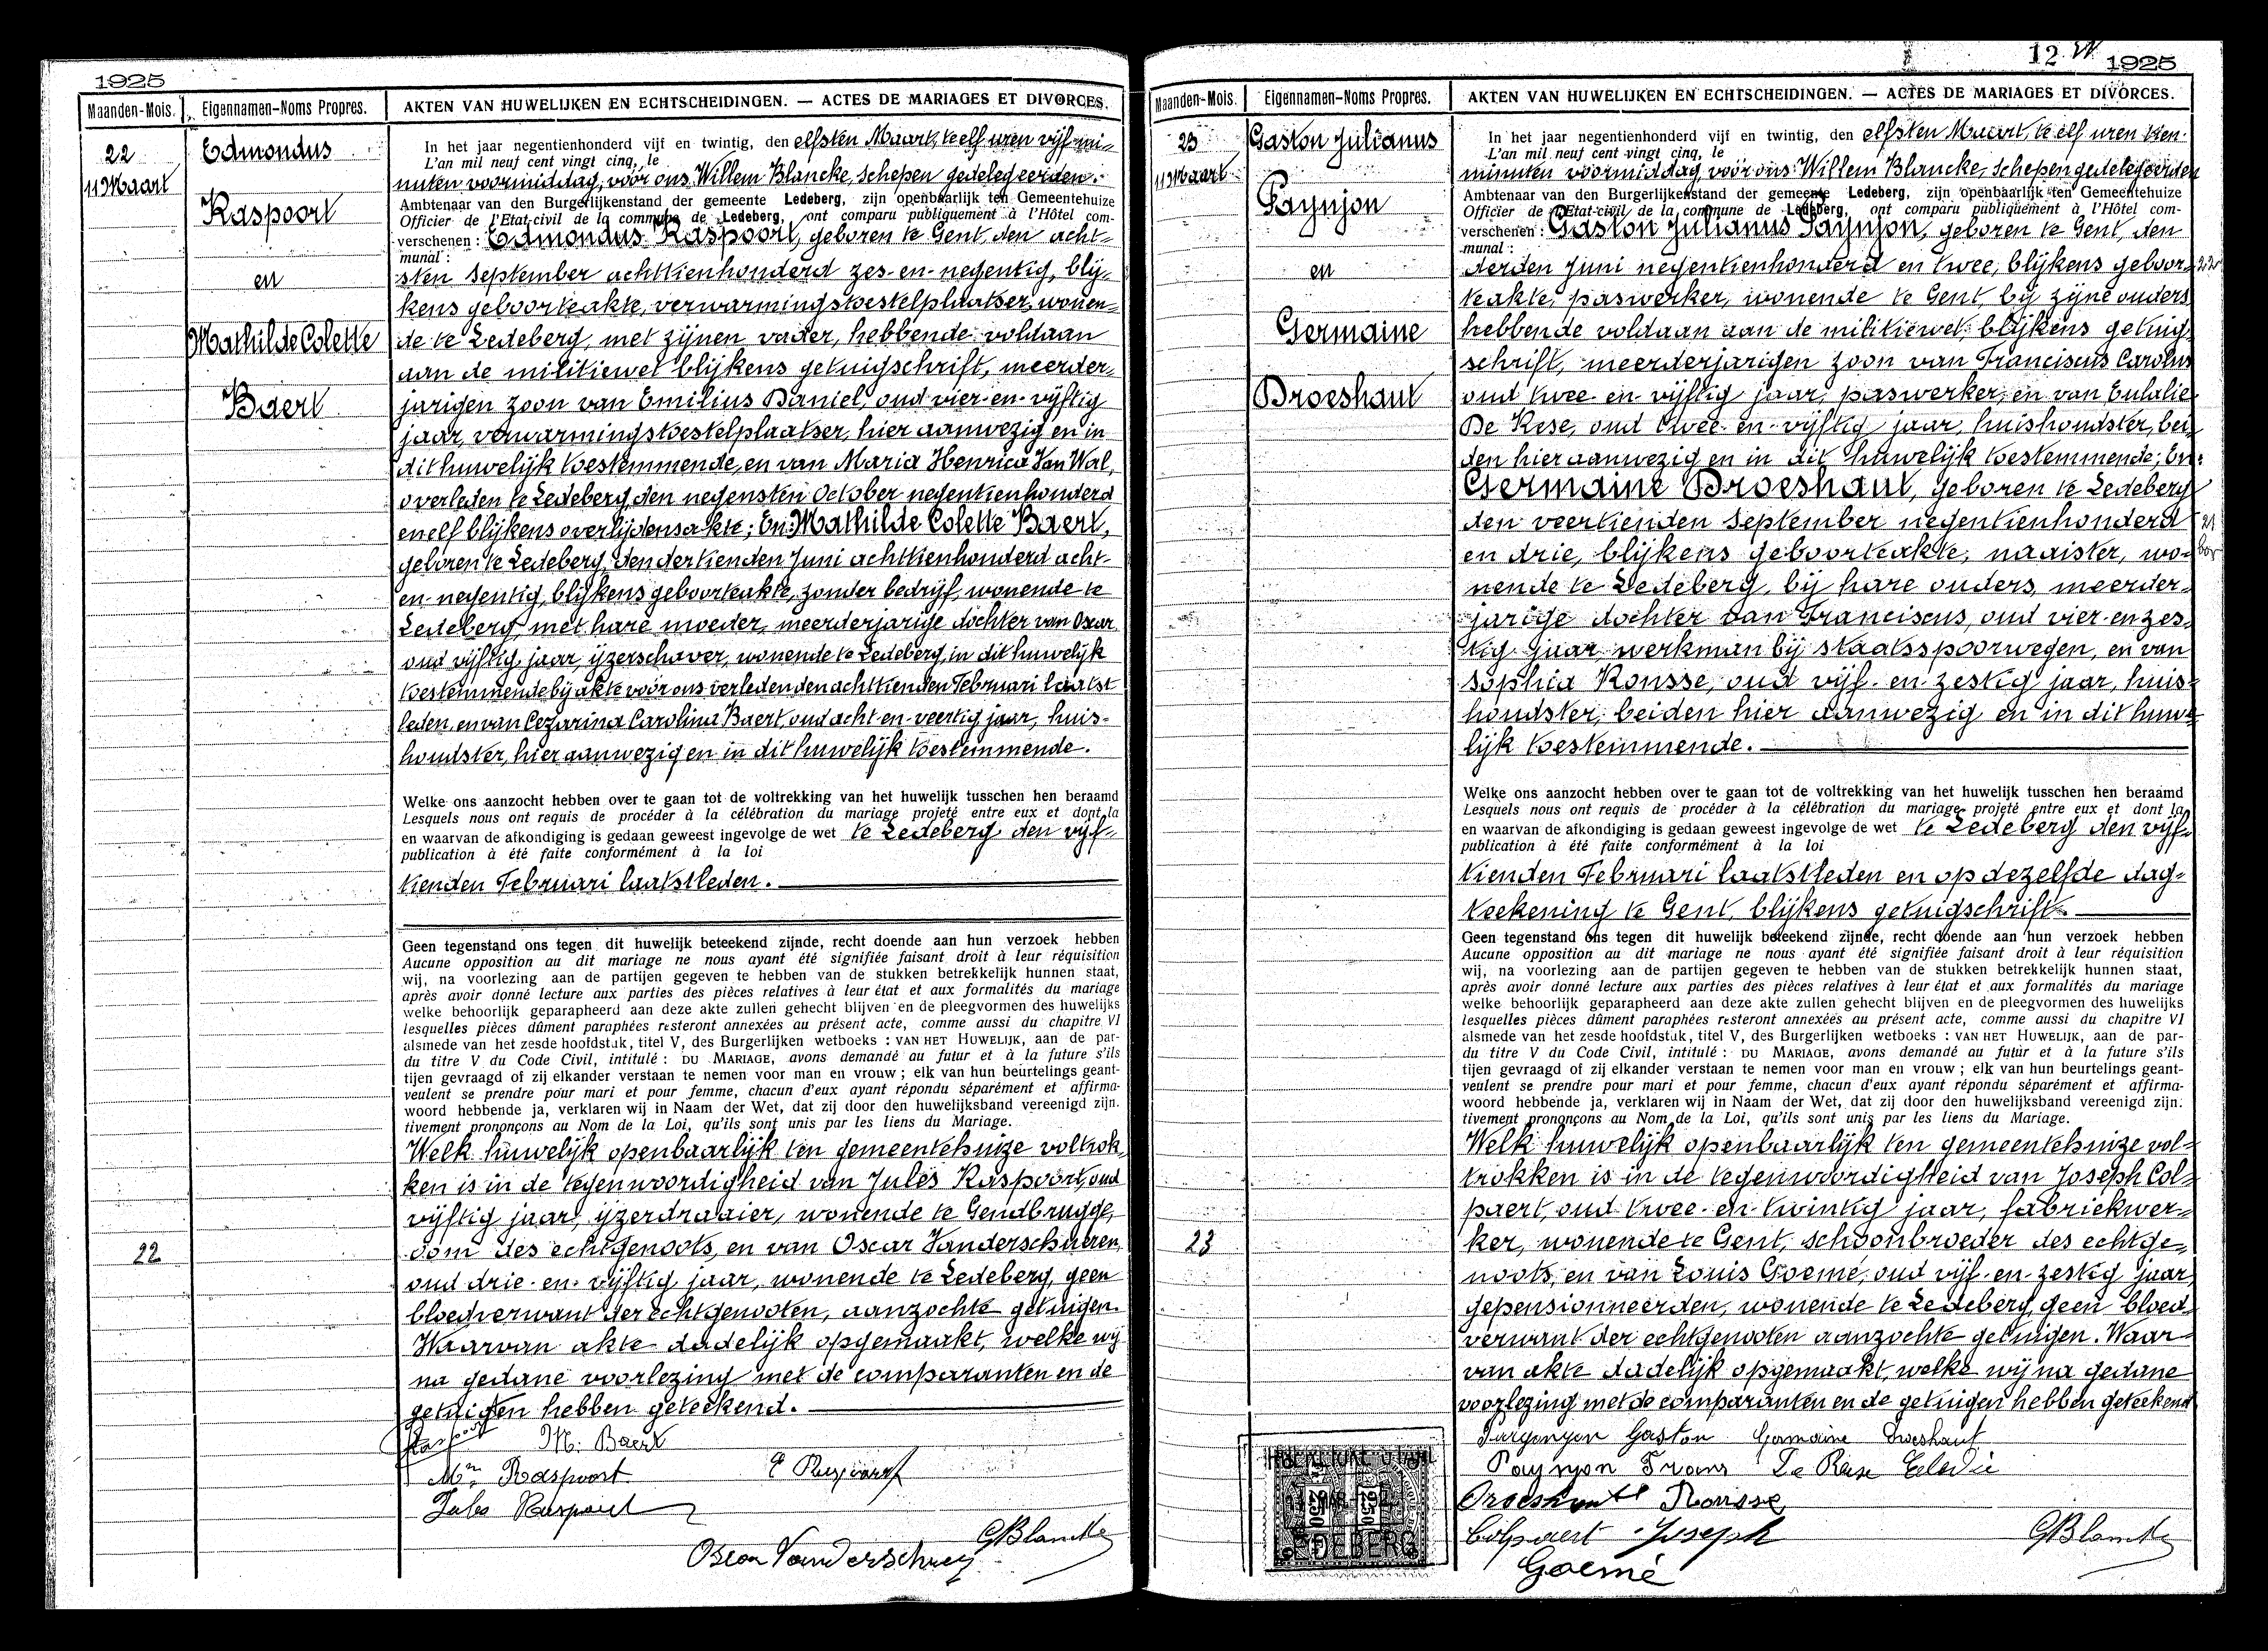 1925
Maanden-Mois.
Eigennamen-Noms Propres.
AKTEN VAN HUWELIJKEN EN ECHTSCHEIDINGEN. — ACTES DE MARIAGES ET DIVORCES.
22
11 Maart
Edmondus
Raspoort
en
Mathilde Colette
Baert
In het jaar negentienhonderd vijf en twintig, den elfsten Maart, te elf uren vijf mi-
L'an mil neuf cent vingt cinq, le
nuten voormiddag, voor ons Willem Blancke, schepen gedelegeerden.
Ambtenaar van den Burgerlijkenstand der gemeente Ledeberg, zijn openbaarlijk ten Gemeentehuize
Officier de l'Etat-civil de la commune de Ledeberg, ont comparu publiquement à l'Hôtel com-
verschenen : Edmondus Raspoort, geboren te Gent, den acht-
munal :
sten September achttienhonderd zes-en-negentig, blij-
kens geboorteakte, verwarmingstoestelplaatser, wonen-
de te Ledeberg, met zijnen vader, hebbende voldaan
aan de militiewet blijkens getuigschrift, meerder-
jarigen zoon van Emilius Daniel, oud vier-en-vijftig
jaar, verwarmingstoestelplaatser, hier aanwezig en in
dit huwelijk toestemmende, en van Maria Henrica Van Wal,
overleden te Ledeberg, den negensten October negentienhonderd
en elf blijkens overlijdensakte; En: Mathilde Colette Baert,
geboren te Ledeberg, den dertienden Juni achttienhonderd acht-
en-negentig, blijkens geboorteakte, zonder bedrijf, wonende te
Ledeberg, met hare moeder, meerderjarige dochter van Oscar
oud vijftig jaar, ijzerschaver, wonende te Ledeberg, in dit huwelijk
toestemmende bij akte voor ons verleden den achttienden Februari laatst
leden, en van Cezarina Carolina Baert, oud acht-en-veertig jaar, huis-
houdster, hier aanwezig en in dit huwelijk toestemmende.
Welke ons aanzocht hebben over te gaan tot de voltrekking van het huwelijk tusschen hen beraamd
Lesquels nous ont requis de procéder à la célébration du mariage projeté entre eux et dont la
en waarvan de afkondiging is gedaan geweest ingevolge de wet te Ledeberg den vijf-
publication à été faite conformément à la loi
tienden Februari laatstleden.
Geen tegenstand ons tegen dit huwelijk beteekend zijnde, recht doende aan hun verzoek hebben
Aucune opposition au dit mariage ne nous ayant été signifiée faisant droit à leur réquisition
wij, na voorlezing aan de partijen gegeven te hebben van de stukken betrekkelijk hunnen staat,
après avoir donné lecture aux parties des pièces relatives à leur état et aux formalités du mariage
welke behoorlijk geparapheerd aan deze akte zullen gehecht blijven en de pleegvormen des huwelijks
lesquelles pièces dûment paraphées resteront annexées au présent acte, comme aussi du chapitre VI
alsmede van het zesde hoofdstuk, titel V, des Burgerlijken wetboeks : VAN HET HUWELIJK, aan de par-
du titre V du Code Civil, intitulé : DU MARIAGE, avons demandé au futur et à la future s'ils
tijen gevraagd of zij elkander verstaan te nemen voor man en vrouw ; elk van hun beurtelings geant-
veulent se prendre pour mari et pour femme, chacun d'eux ayant répondu séparément et affirma-
woord hebbende ja, verklaren wij in Naam der Wet, dat zij door den huwelijksband vereenigd zijn.
tivement prononçons au Nom de la Loi, qu'ils sont unis par les liens du Mariage.
Welk huwelijk openbaarlijk ten gemeentehuize voltrok-
ken is in de tegenwoordigheid van Jules Raspoort, oud
vijftig jaar, ijzerdraaier, wonende te Gendbrugge,
oom des echtgenoots, en van Oscar Vanderschueren,
22
oud drie-en-vijftig jaar, wonende te Ledeberg, geen
bloedverwant der echtgenooten, aanzochte getuigen.
Waarvan akte dadelijk opgemaakt, welke wij
na gedane voorlezing met de comparanten en de
getuigen hebben geteekend.
M. Baert
Raspoort
Jules Raspoort
Oscar Vanderschueren
GBlancke
12
1925
Maanden-Mois.
Eigennamen-Noms Propres.
AKTEN VAN HUWELIJKEN EN ECHTSCHEIDINGEN. — ACTES DE MARIAGES ET DIVORCES.
23
11 Maart
Gaston Julianus
Paynjon
en
Germaine
Droeshaut
In het jaar negentienhonderd vijf en twintig, den elfsten Maart, te elf uren tien
L'an mil neuf cent vingt cinq, le
minuten voormiddag, voor ons Willem Blancke, schepen gedelegeerden
Ambtenaar van den Burgerlijkenstand der gemeente Ledeberg, zijn openbaarlijk ten Gemeentehuize
Officier de l'Etat-civil de la commune de Ledeberg, ont comparu publiquement à l'Hôtel com-
verschenen : Gaston Julianus Paynjon, geboren te Gent, den
munal :
derden Juni negentienhonderd en twee, blijkens geboor-
teakte, paswerker, wonende te Gent, bij zijne ouders
hebbende voldaan aan de militiewet blijkens getuig-
schrift, meerderjarigen zoon van Franciscus Carolus
oud twee-en-vijftig jaar, paswerker, en van Eulalie
De Rese, oud twee-en-vijftig jaar, huishoudster, bei-
den hier aanwezig en in dit huwelijk toestemmende; En:
Germaine Droeshaut, geboren te Ledeberg
den veertienden September negentienhonderd
en drie, blijkens geboorteakte, naaister, wo-
nende te Ledeberg, bij hare ouders, meerder-
jarige dochter van Franciscus, oud vier-en-zes-
tig jaar, werkman bij staatsspoorwegen, en van
Sophia Rousse, oud vijf-en-zestig jaar, huis-
houdster, beiden hier aanwezig en in dit huwe-
lijk toestemmende.
Welke ons aanzocht hebben over te gaan tot de voltrekking van het huwelijk tusschen hen beraamd
Lesquels nous ont requis de procéder à la célébration du mariage projeté entre eux et dont la
en waarvan de afkondiging is gedaan geweest ingevolge de wet te Ledeberg den vijf-
publication à été faite conformément à la loi
tienden Februari laatstleden en op dezelfde dag-
teekening te Gent, blijkens getuigschrift.
Geen tegenstand ons tegen dit huwelijk beteekend zijnde, recht doende aan hun verzoek hebben
Aucune opposition au dit mariage ne nous ayant été signifiée faisant droit à leur réquisition
wij, na voorlezing aan de partijen gegeven te hebben van de stukken betrekkelijk hunnen staat,
après avoir donné lecture aux parties des pièces relatives à leur état et aux formalités du mariage
welke behoorlijk geparapheerd aan deze akte zullen gehecht blijven en de pleegvormen des huwelijks
lesquelles pièces dûment paraphées resteront annexées au présent acte, comme aussi du chapitre VI
alsmede van het zesde hoofdstuk, titel V, des Burgerlijken wetboeks : VAN HET HUWELIJK, aan de par-
du titre V du Code Civil, intitulé : DU MARIAGE, avons demandé au futur et à la future s'ils
tijen gevraagd of zij elkander verstaan te nemen voor man en vrouw ; elk van hun beurtelings geant-
veulent se prendre pour mari et pour femme, chacun d'eux ayant répondu séparément et affirma-
woord hebbende ja, verklaren wij in Naam der Wet, dat zij door den huwelijksband vereenigd zijn.
tivement prononçons au Nom de la Loi, qu'ils sont unis par les liens du Mariage.
Welk huwelijk openbaarlijk ten gemeentehuize vol-
trokken is in de tegenwoordigheid van Joseph Col-
paert, oud twee-en-twintig jaar, fabriekwer-
ker, wonende te Gent, schoonbroeder des echtge-
23
noots, en van Louis Goemé, oud vijf-en-zestig jaar
gepensionneerden, wonende te Ledeberg, geen bloed-
verwant der echtgenooten aanzochte getuigen. Waar-
van akte dadelijk opgemaakt, welke wij na gedane
voorlezing met de comparanten en de getuigen hebben geteekend
Gaston Germaine Droeshaut
Paynjon Frans De Rese
Droeshaut Rousse
Colpaert Joseph
GBlancke
Goemé
2.50 2.50
LEDEBERG